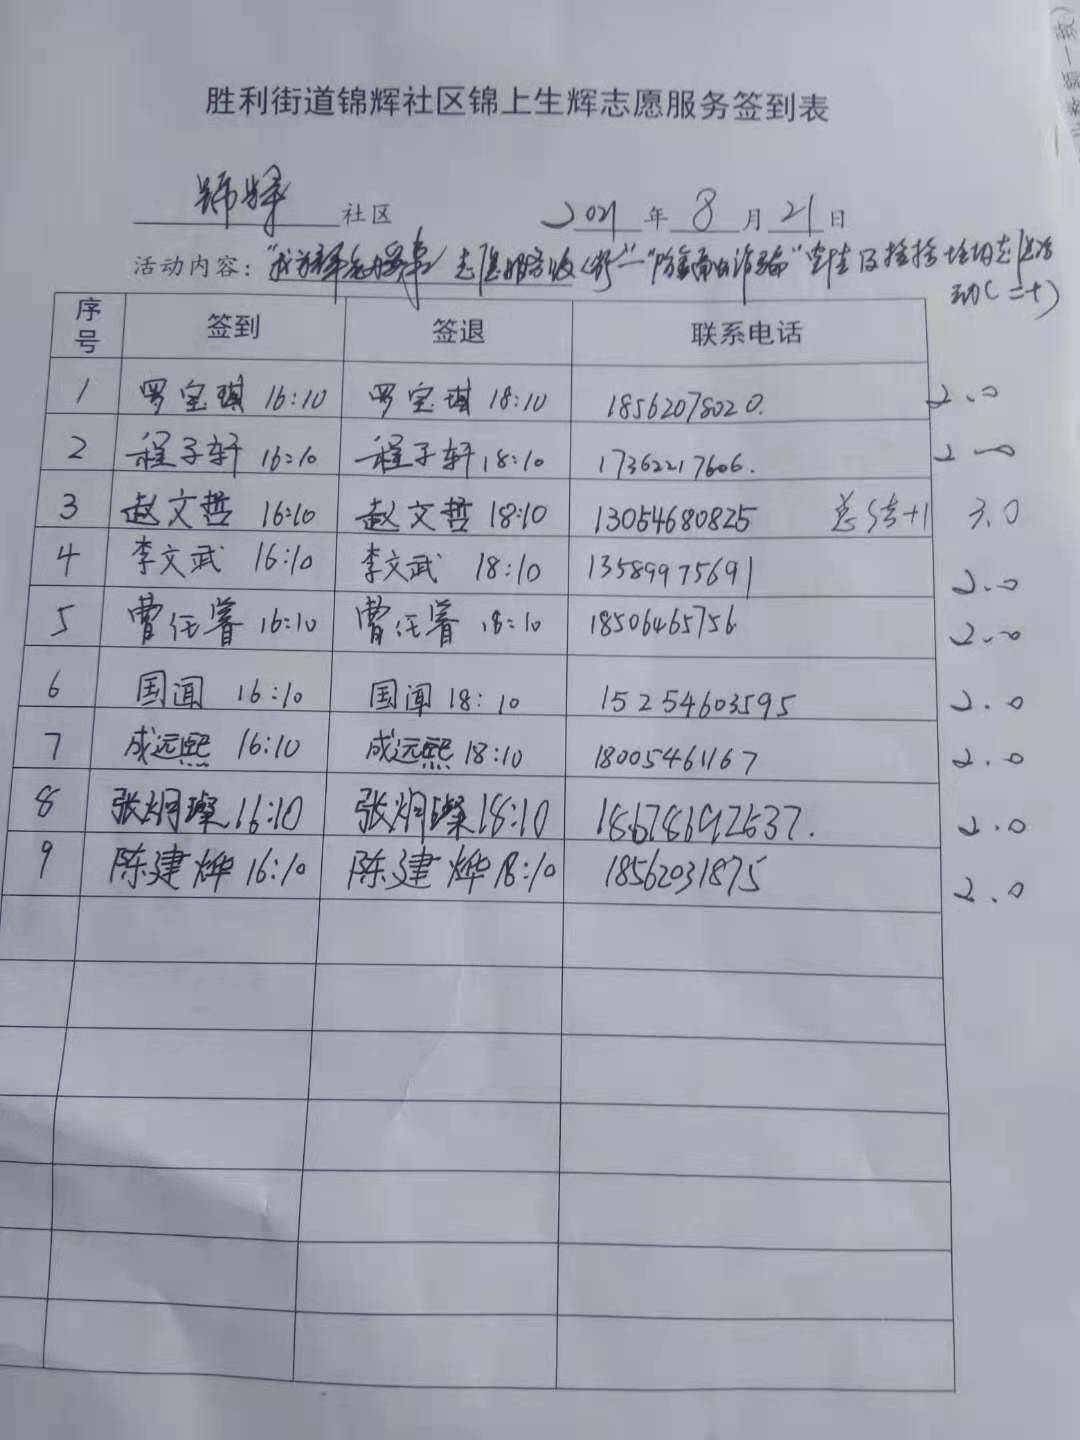 胜利街道锦辉社区锦上生辉志愿服务签到表
锦辉 社区 2021 年 8 月 21 日
活动内容：“我为群众办实事”志愿服务 “防电信诈骗”宣传及 志愿活
动（二十）
序号 签到 签退 联系电话
1 罗宝琪 16:10 罗宝琪 18:10 18562078020. 2.0
2 程子轩 16:10 程子轩 18:10 17362217606. 2.0
3 赵文哲 16:10 赵文哲 18:10 13054680825 总结+1 3.0
4 李文武 16:10 李文武 18:10 13589975691 2.0
5 曹任睿 16:10 曹任睿 18:10 18506465756 2.0
6 国闻 16:10 国闻 18:10 15254603595 2.0
7 成远熙 16:10 成远熙 18:10 18005461167 2.0
8 张炯璨 16:10 张炯璨 18:10 18678692637. 2.0
9 陈建烨 16:10 陈建烨 18:10 18562031875 2.0